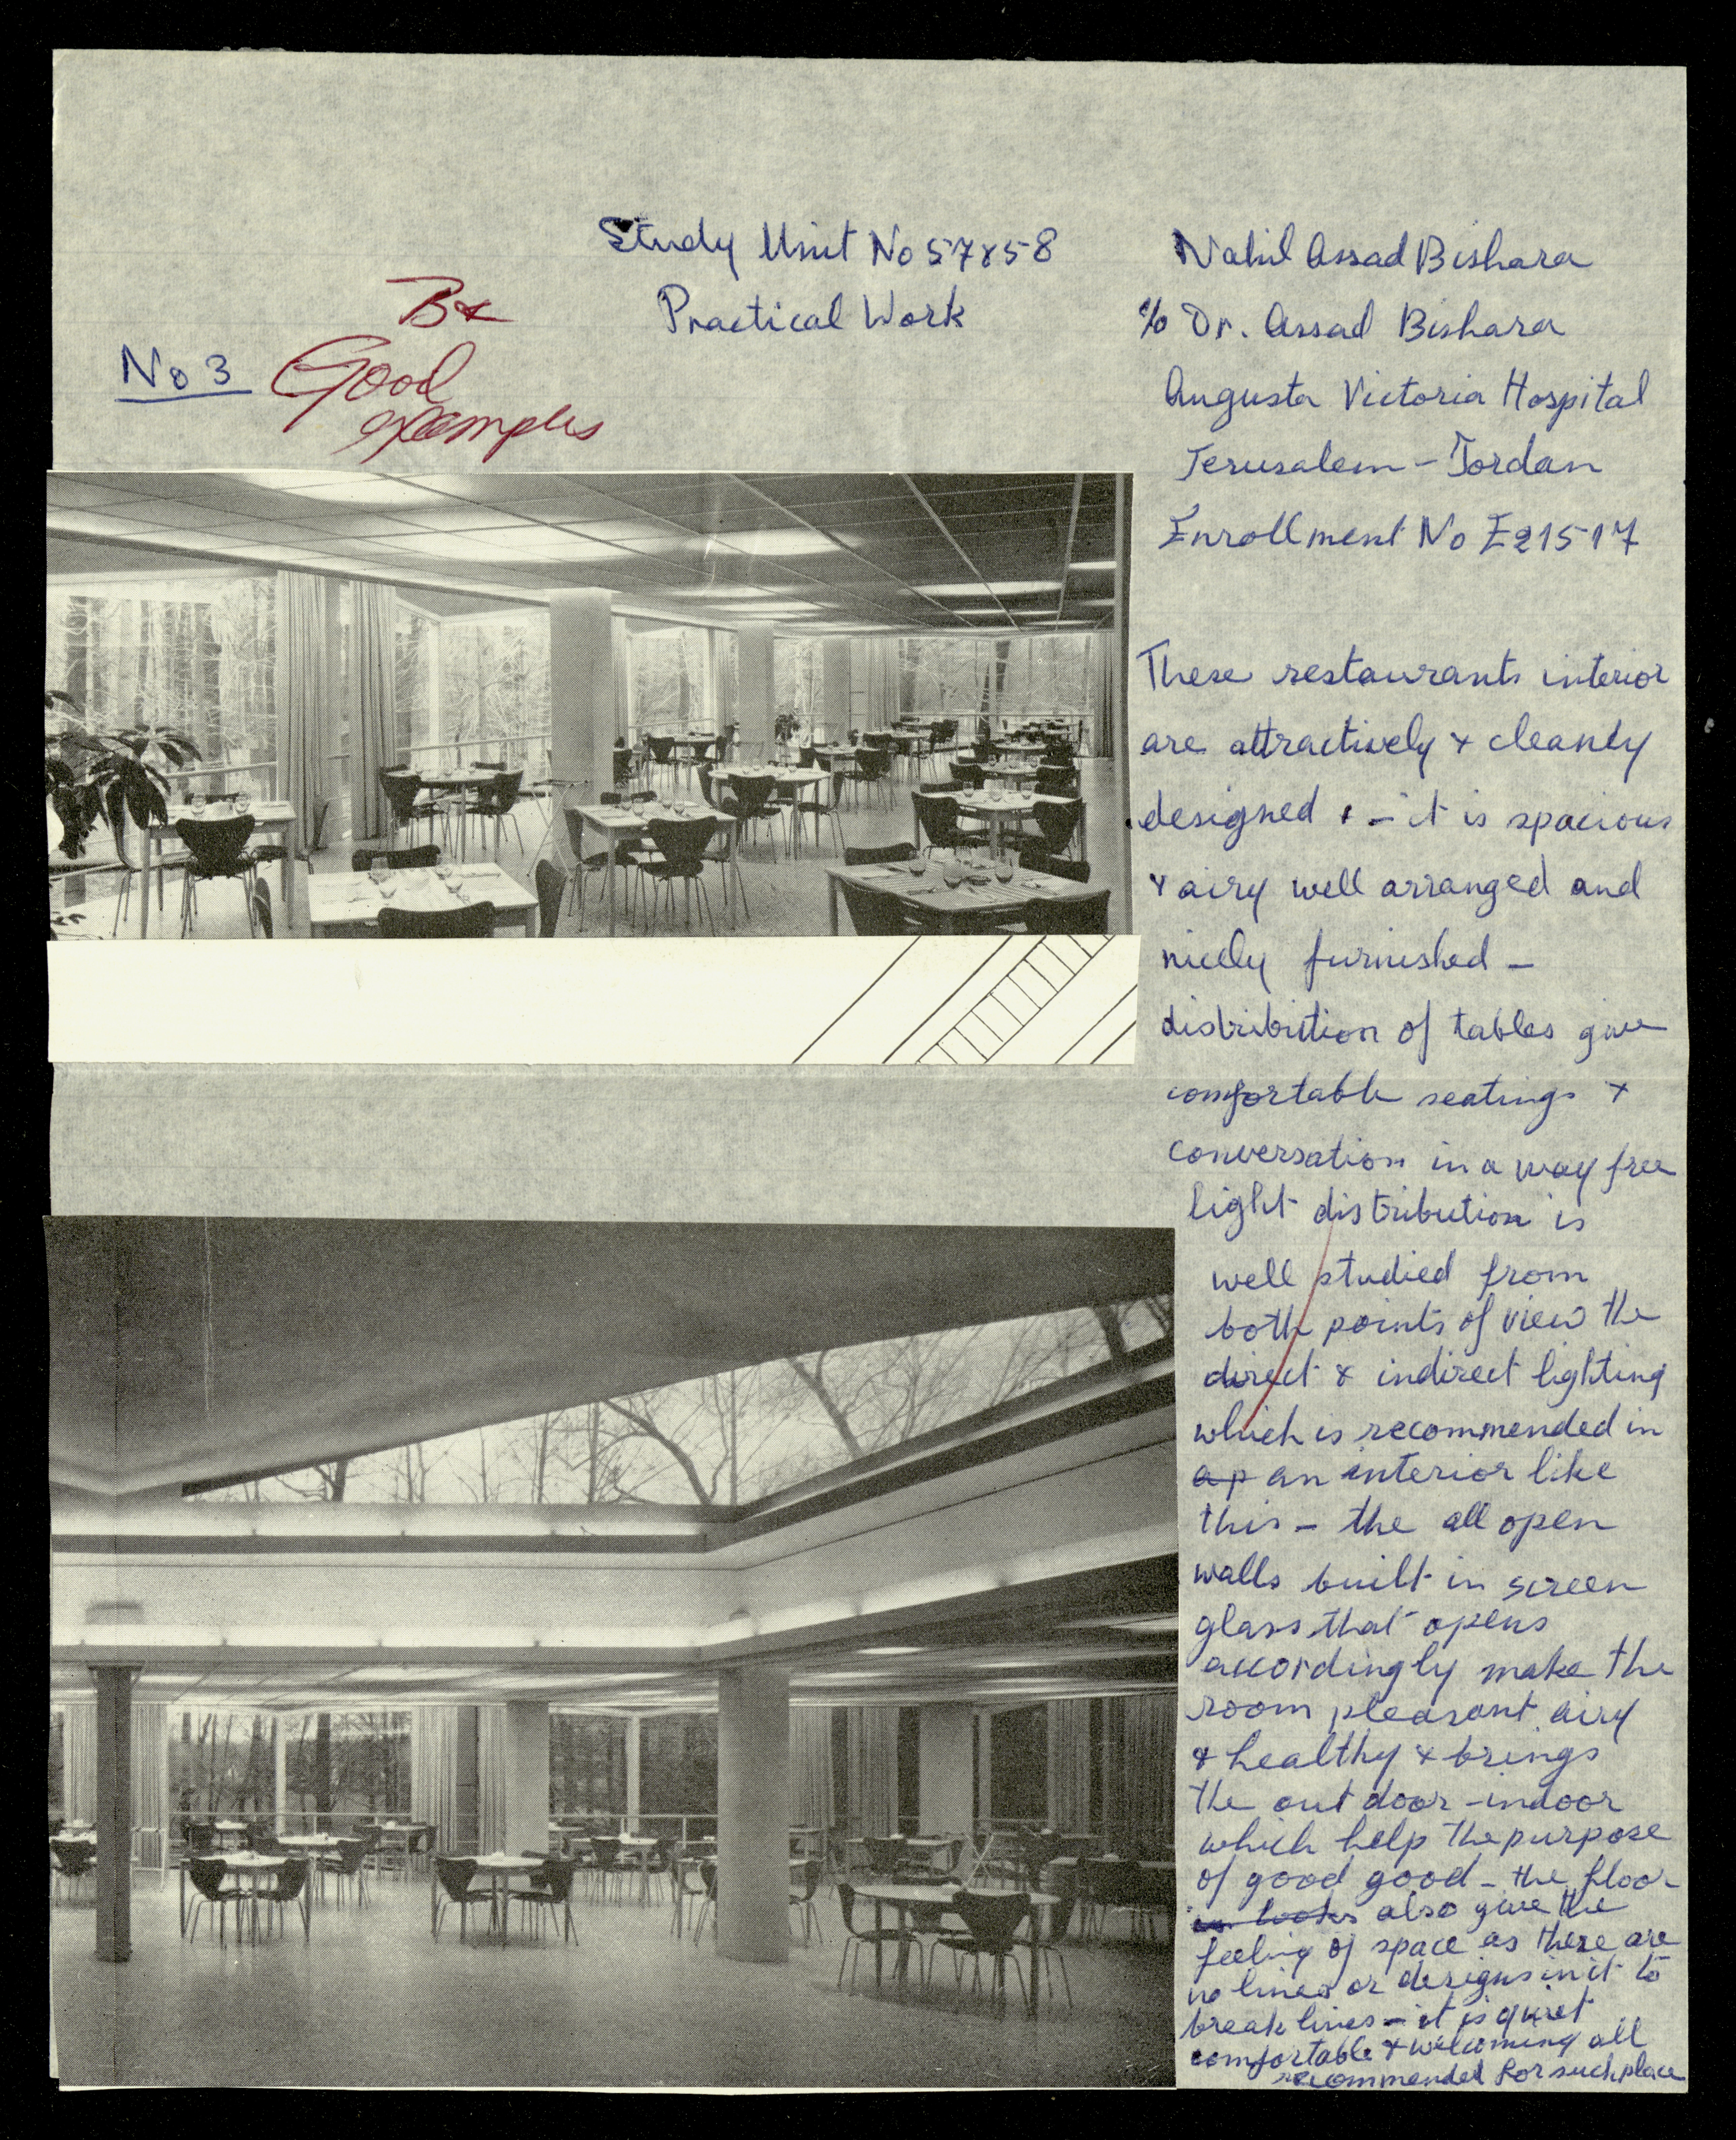 Study Unit No 57858
Practical Work
Nahil Assad Bishara
c/o Dr. Assad Bishara
Augusta Victoria Hospital
Jerusalem - Jordan
Enrollment No E21517
No 3
B+
Good
examples
These restaurants interior
are attractively & cleanly
designed & - it is spacious
& airy well arranged and
nicely furnished -
distribution of tables give
comfortable seatings &
conversation in a way free
light distribution is
well studied from
both points of view the
direct & indirect lighting
which is recommended in
a p an interior like
this - the all open
walls built in screen
glass that opens
accordingly make the
room pleasant airy
& healthy & brings
the out door - indoor
which help the purpose
of good good - the floor
looks also give the
feeling of space as there are
no lines or designs in it to
break lines - it is quiet
comfortable & welcoming all
recommended for such place